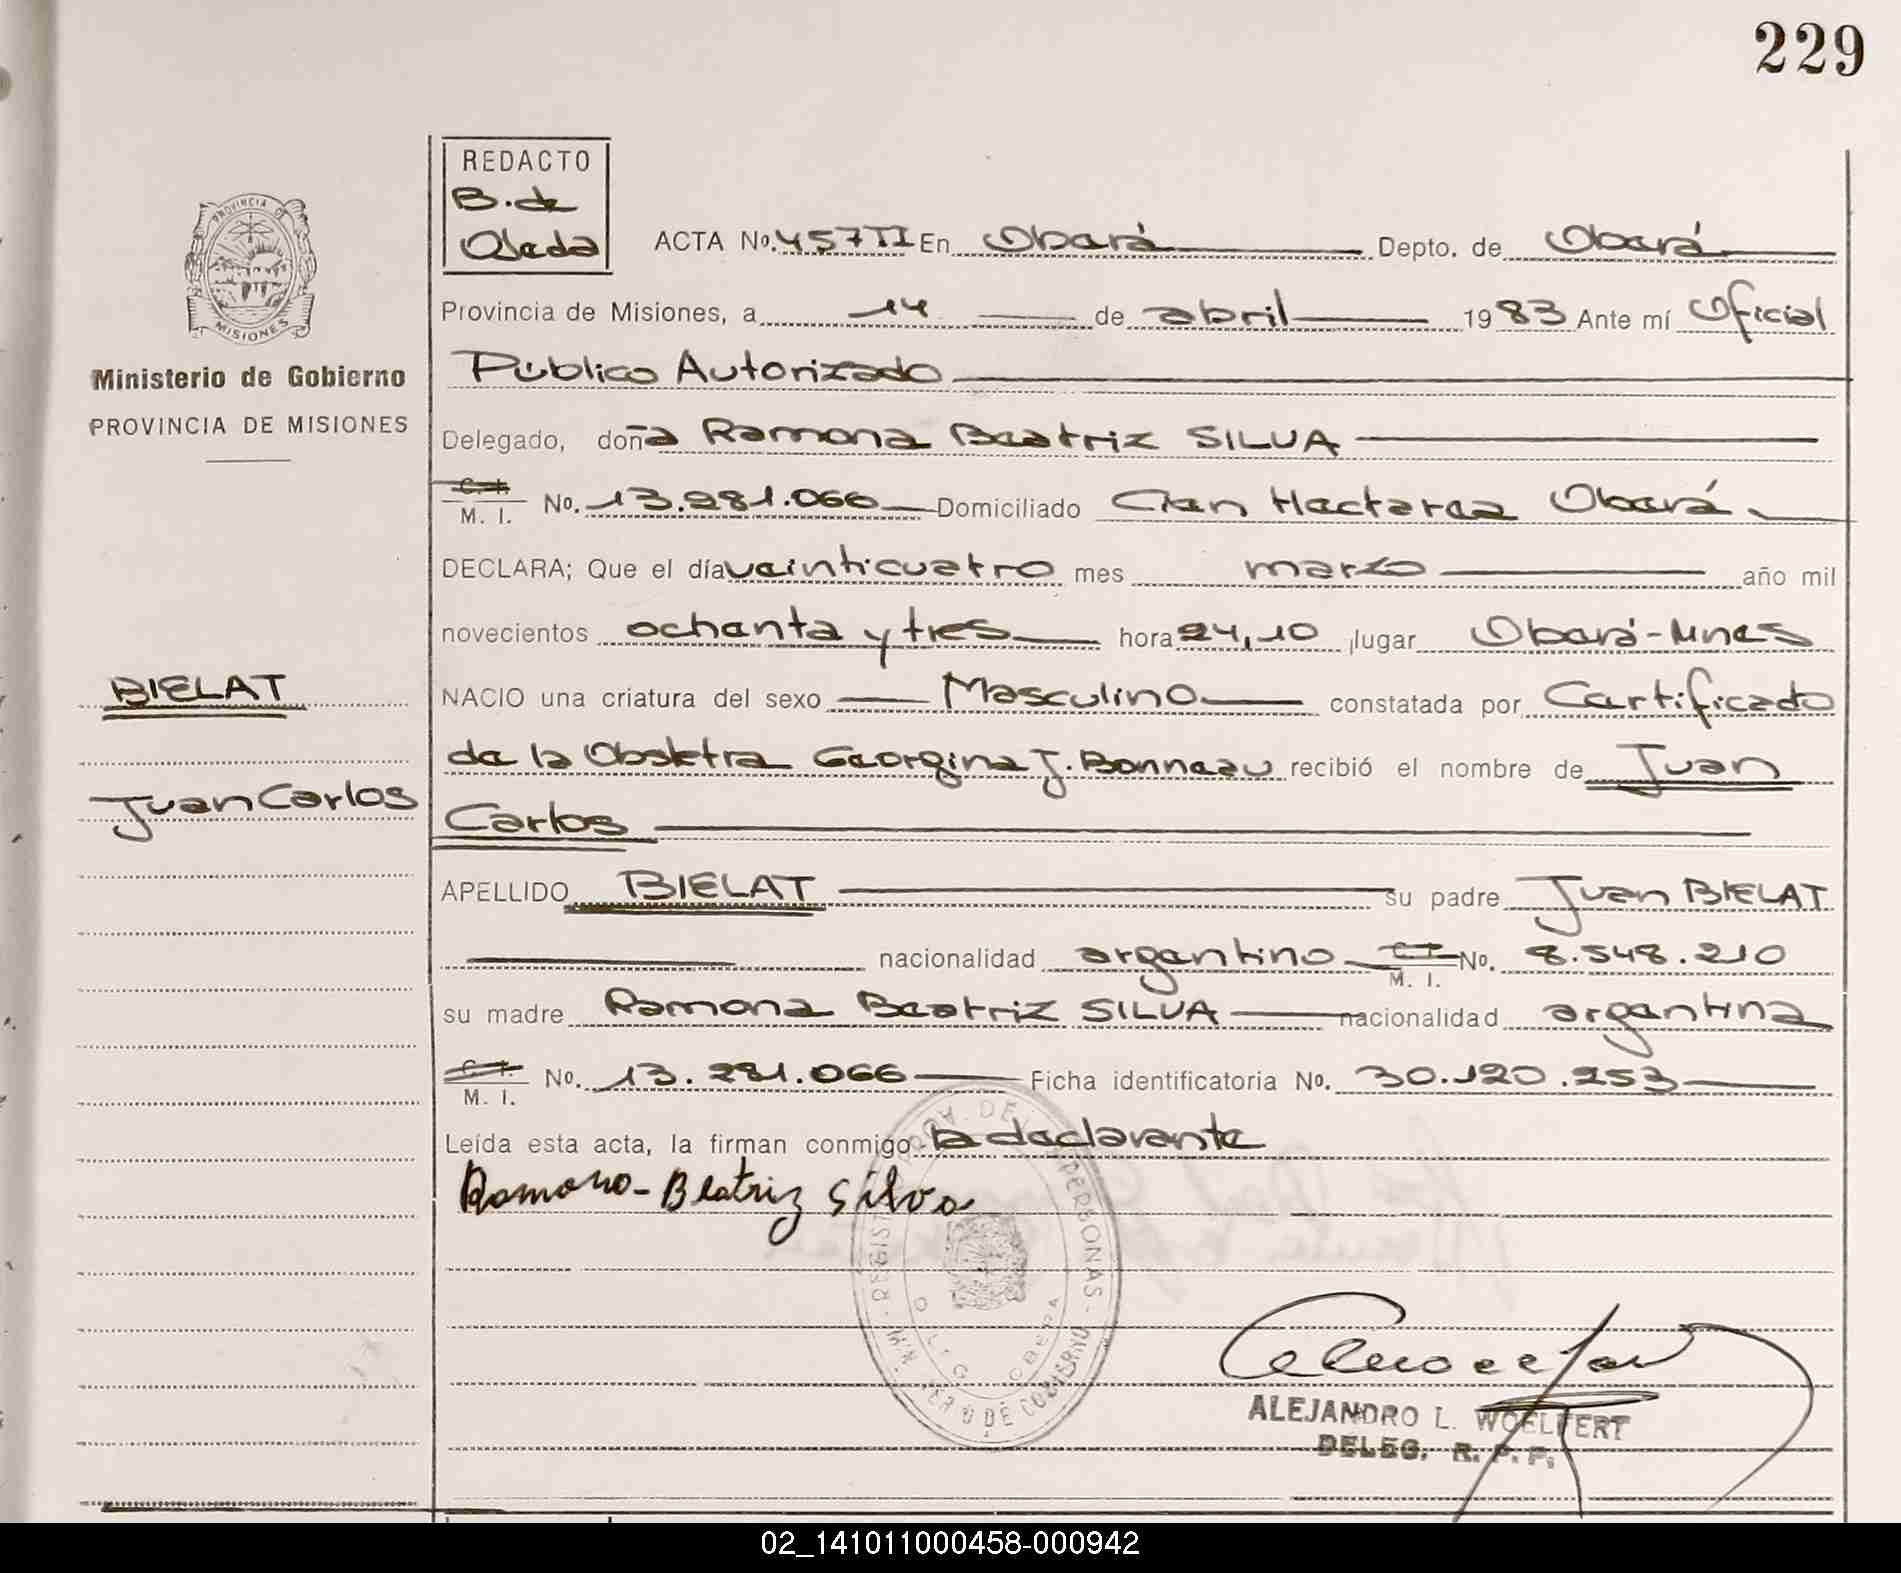 229
REDACTO
B. de
Ojeda
PROVINCIA DE
MISIONES
Ministerio de Gobierno
PROVINCIA DE MISIONES
ACTA No. 457 TI En Oberá Depto. de Oberá
Provincia de Misiones, a 14 de abril 1983 Ante mí Oficial
Público Autorizado
Delegado, doña Ramona Beatriz SILVA
C. I. M. I. No. 13.281.066 Domiciliado Cien Hectarea Oberá
DECLARA; Que el día veinticuatro mes marzo año mil
novecientos ochenta y tres hora 24,10 lugar Oberá-Mnes
BIELAT
NACIO una criatura del sexo Masculino constatada por Certificado
de la Obstetra Georgina J. Bonneau recibió el nombre de Juan
Juan Carlos
Carlos
APELLIDO BIELAT su padre Juan BIELAT
nacionalidad argentino C. I. M. I. No. 8.548.210
su madre Ramona Beatriz SILVA nacionalidad argentina
C. I. M. I. No. 13.281.066 Ficha identificatoria No. 30.120.253
Leída esta acta, la firman conmigo la declarante
Ramona-Beatriz Silva
PERSONAS
OBERA
ALEJANDRO L. WOELFERT
DELEG. R. P. P.
02_141011000458-000942